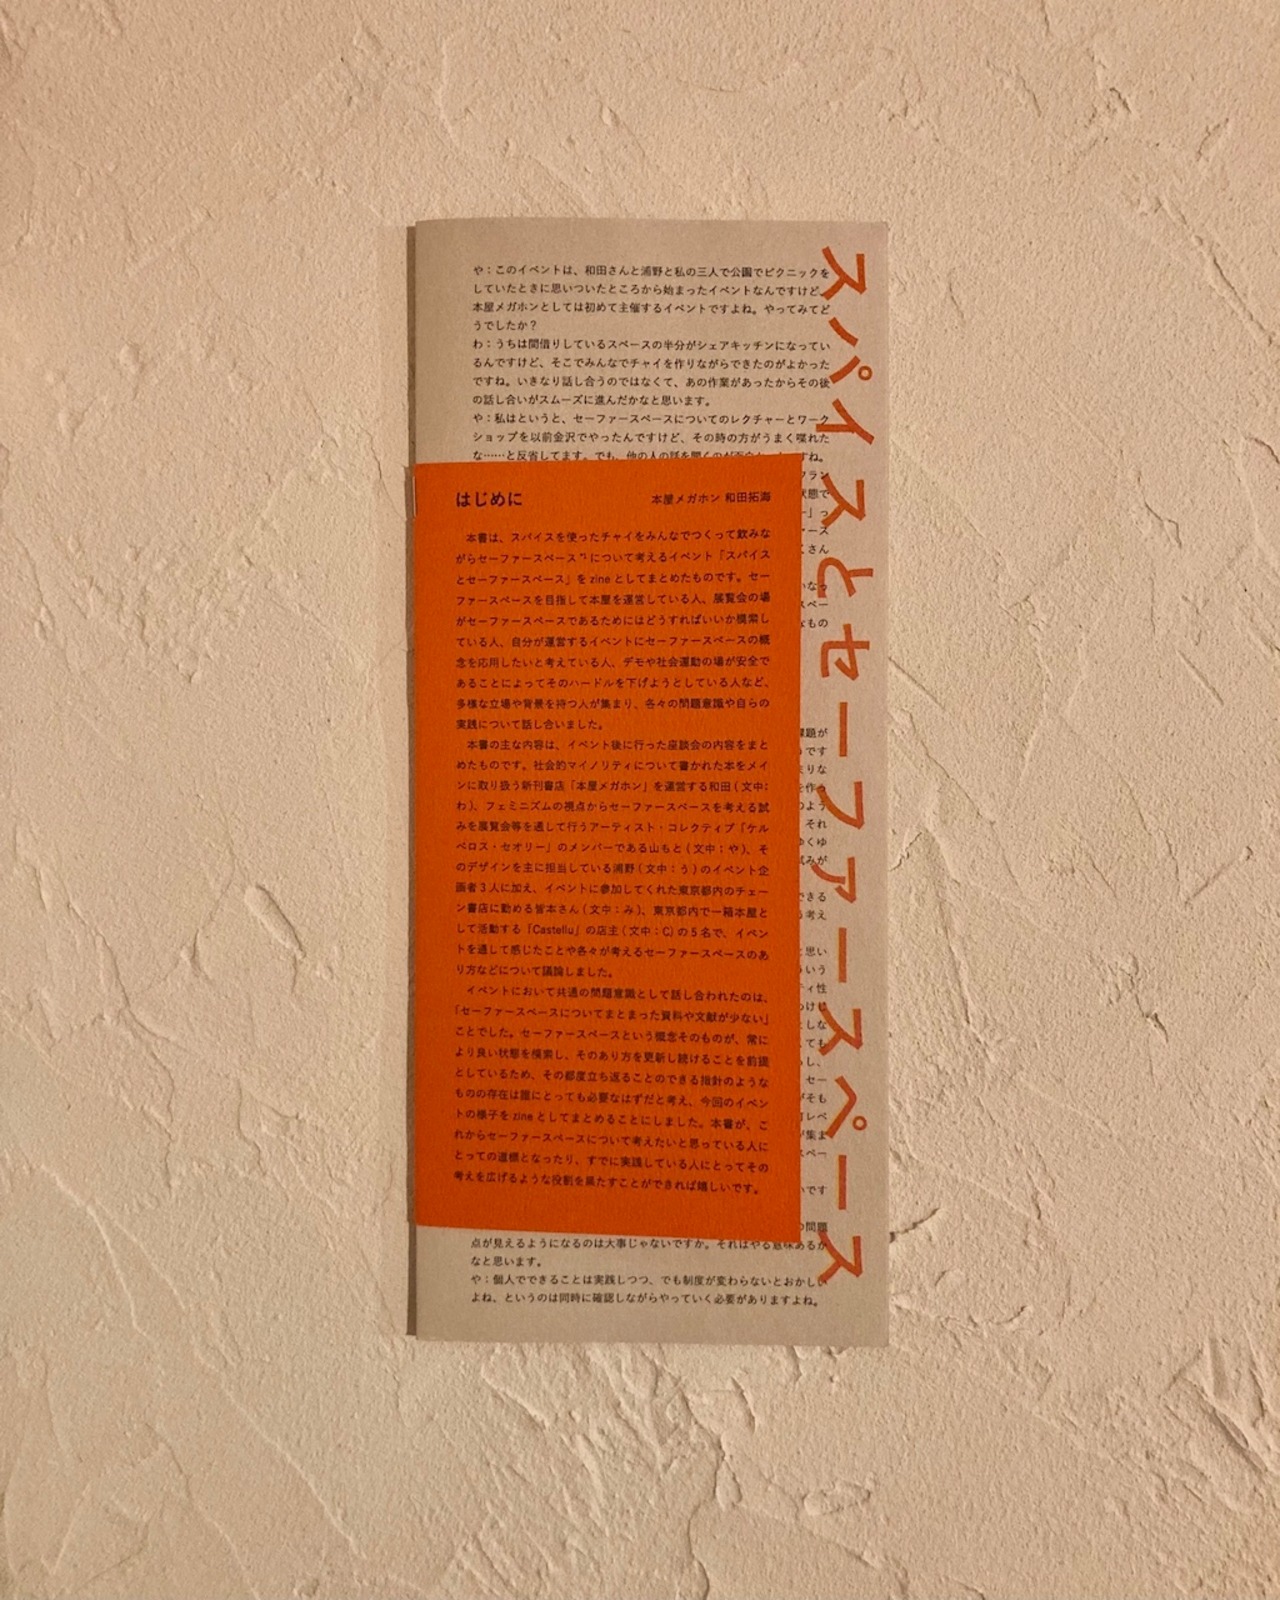 スパイスとセーファースペース
や：このイベントは、和田さんと浦野と私の三人で公園でピクニックを
していたときに思いついたところから始まったイベントなんですけど、
本屋メガホンとしては初めて主催するイベントですよね。やってみてど
うでしたか？
わ：うちは間借りしているスペースの半分がシェアキッチンになってい
るんですけど、そこでみんなでチャイを作りながらできたのがよかった
ですね。いきなり話し合うのではなくて、あの作業があったからその後
の話し合いがスムーズに進んだかなと思います。
や：私はというと、セーファースペースについてのレクチャーとワーク
ショップを以前金沢でやったんですけど、その時の方がうまく喋れた
な……と反省してます。でも、他の人の話を聞くのが
はじめに
本屋メガホン 和田拓海
本書は、スパイスを使ったチャイをみんなでつくって飲みな
がらセーファースペース*¹について考えるイベント「スパイス
とセーファースペース」を zine としてまとめたものです。セー
ファースペースを目指して本屋を運営している人、展覧会の場
がセーファースペースであるためにはどうすればいいか模索し
ている人、自分が運営するイベントにセーファースペースの概
念を応用したいと考えている人、デモや社会運動の場が安全で
あることによってそのハードルを下げようとしている人など、
多様な立場や背景を持つ人が集まり、各々の問題意識や自らの
実践について話し合いました。
本書の主な内容は、イベント後に行った座談会の内容をまと
めたものです。社会的マイノリティについて書かれた本をメイ
ンに取り扱う新刊書店「本屋メガホン」を運営する和田（文中：
わ）、フェミニズムの視点からセーファースペースを考える試
みを展覧会等を通して行うアーティスト・コレクティブ「ケル
ベロス・セオリー」のメンバーである山もと（文中：や）、そ
のデザインを主に担当している浦野（文中：う）のイベント企
画者３人に加え、イベントに参加してくれた東京都内のチェー
ン書店に勤める皆本さん（文中：み）、東京都内で一箱本屋と
して活動する「Castellu」の店主（文中：C）の５名で、イベン
トを通して感じたことや各々が考えるセーファースペースのあ
り方などについて議論しました。
イベントにおいて共通の問題意識として話し合われたのは、
「セーファースペースについてまとまった資料や文献が少ない」
ことでした。セーファースペースという概念そのものが、常に
より良い状態を模索し、そのあり方を更新し続けることを前提
としているため、その都度立ち返ることのできる指針のような
ものの存在は誰にとっても必要なはずだと考え、今回のイベン
トの様子を zine としてまとめることにしました。本書が、こ
れからセーファースペースについて考えたいと思っている人に
とっての道標となったり、すでに実践している人にとってその
考えを広げるような役割を果たすことができれば嬉しいです。
点が見えるようになるのは大事じゃないですか。それはやる意味あるか
なと思います。
や：個人でできることは実践しつつ、でも制度が変わらないとおかしい
よね、というのは同時に確認しながらやっていく必要がありますよね。